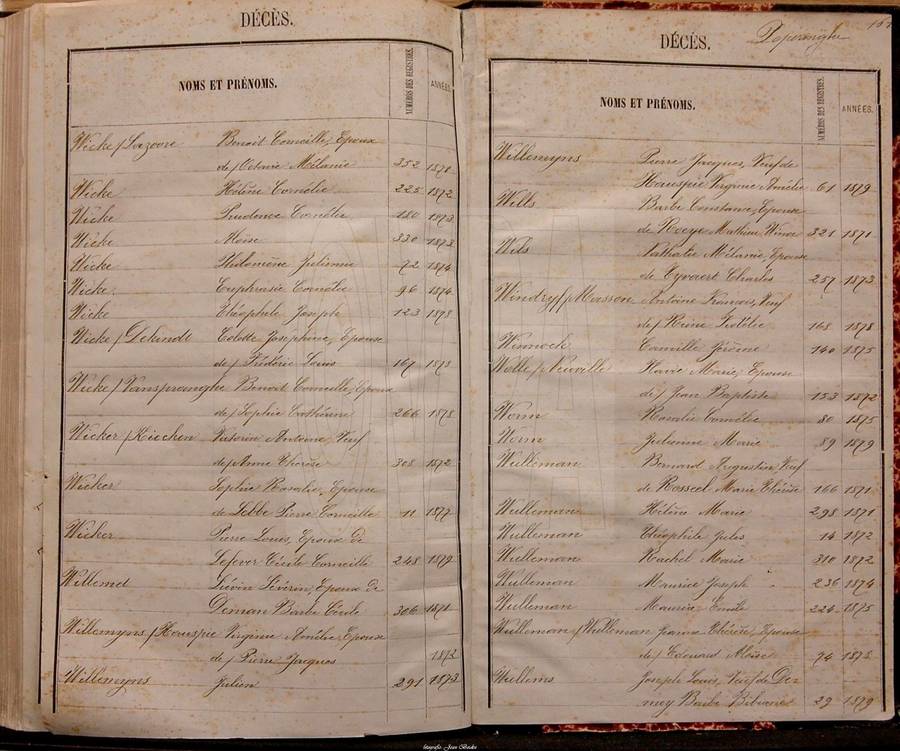 DÉCÈS.
NOMS ET PRÉNOMS. NUMÉROS DES REGISTRES. ANNÉES.
Wicke / Benoit Corneille, Epoux
de / Octavie Mélanie 352 1871
Wicke Hélène Cornélie 225 1872
Wicke Prudence Cornélie 180 1873
Wicke Aloïse 330 1873
Wicke Philomène Julienne 72 1874
Wicke Euphrasie Cornélie 96 1874
Wicke Théophile Joseph 123 1878
Wicke / Dekindt Colette Joséphine, Epouse
de / Frédéric Louis 167 1878
Wicke / Benoit Corneille, Epoux
de / Sophie Cathérine 266 1878
Wicker / Kiecken Victorin Antoine, Veuf
de / Anne Thérèse 308 1872
Wicker Sophie Rosalie, Epouse
de Lebbe Pierre Corneille 11 1877
Wicker Pierre Louis, Epoux de
Lefever Cécile Corneille 248 1879
Willemet Liévin Séverin, Epoux de
Barbe Cécile 306 1871
Willemyns / Houspie Virginie Amélie, Epouse
de / Pierre Jacques 1872
Willemyns Julien 291 1873
DÉCÈS. Poperinghe
NOMS ET PRÉNOMS. NUMÉROS DES REGISTRES. ANNÉES.
Willemyns Pierre Jacques, Veuf de
Houspie Virginie Amélie 61 1879
Wills Barbe Constance, Epouse
de Mathieu Winoc 321 1871
Wils Nathalie Mélanie, Epouse
de Charles 257 1873
Windryf / Masson Antoine François, Veuf
de / Reine 168 1878
Winnock Camille Jérôme 140 1875
Wolle / Neuville Marie, Epouse
de / Jean Baptiste 153 1872
Worm Rosalie Cornélie 80 1875
Worm Julienne Marie 89 1879
Wulleman Bernard Augustin, Veuf
de Rosseel Marie Thérèse 166 1871
Wulleman Hélène Marie 298 1871
Wulleman Théophile Jules 14 1872
Wulleman Rachel Marie 310 1872
Wulleman Maurice Joseph 236 1874
Wulleman Maurice Emile 224 1875
Wulleman / Wulleman Jeanne Thérèse, Epouse
de / Edouard Aloïse 94 1878
Wullems Joseph Louis, Veuf de Der
mey Barbe Bibiane 29 1879
fotografie Jean Beake